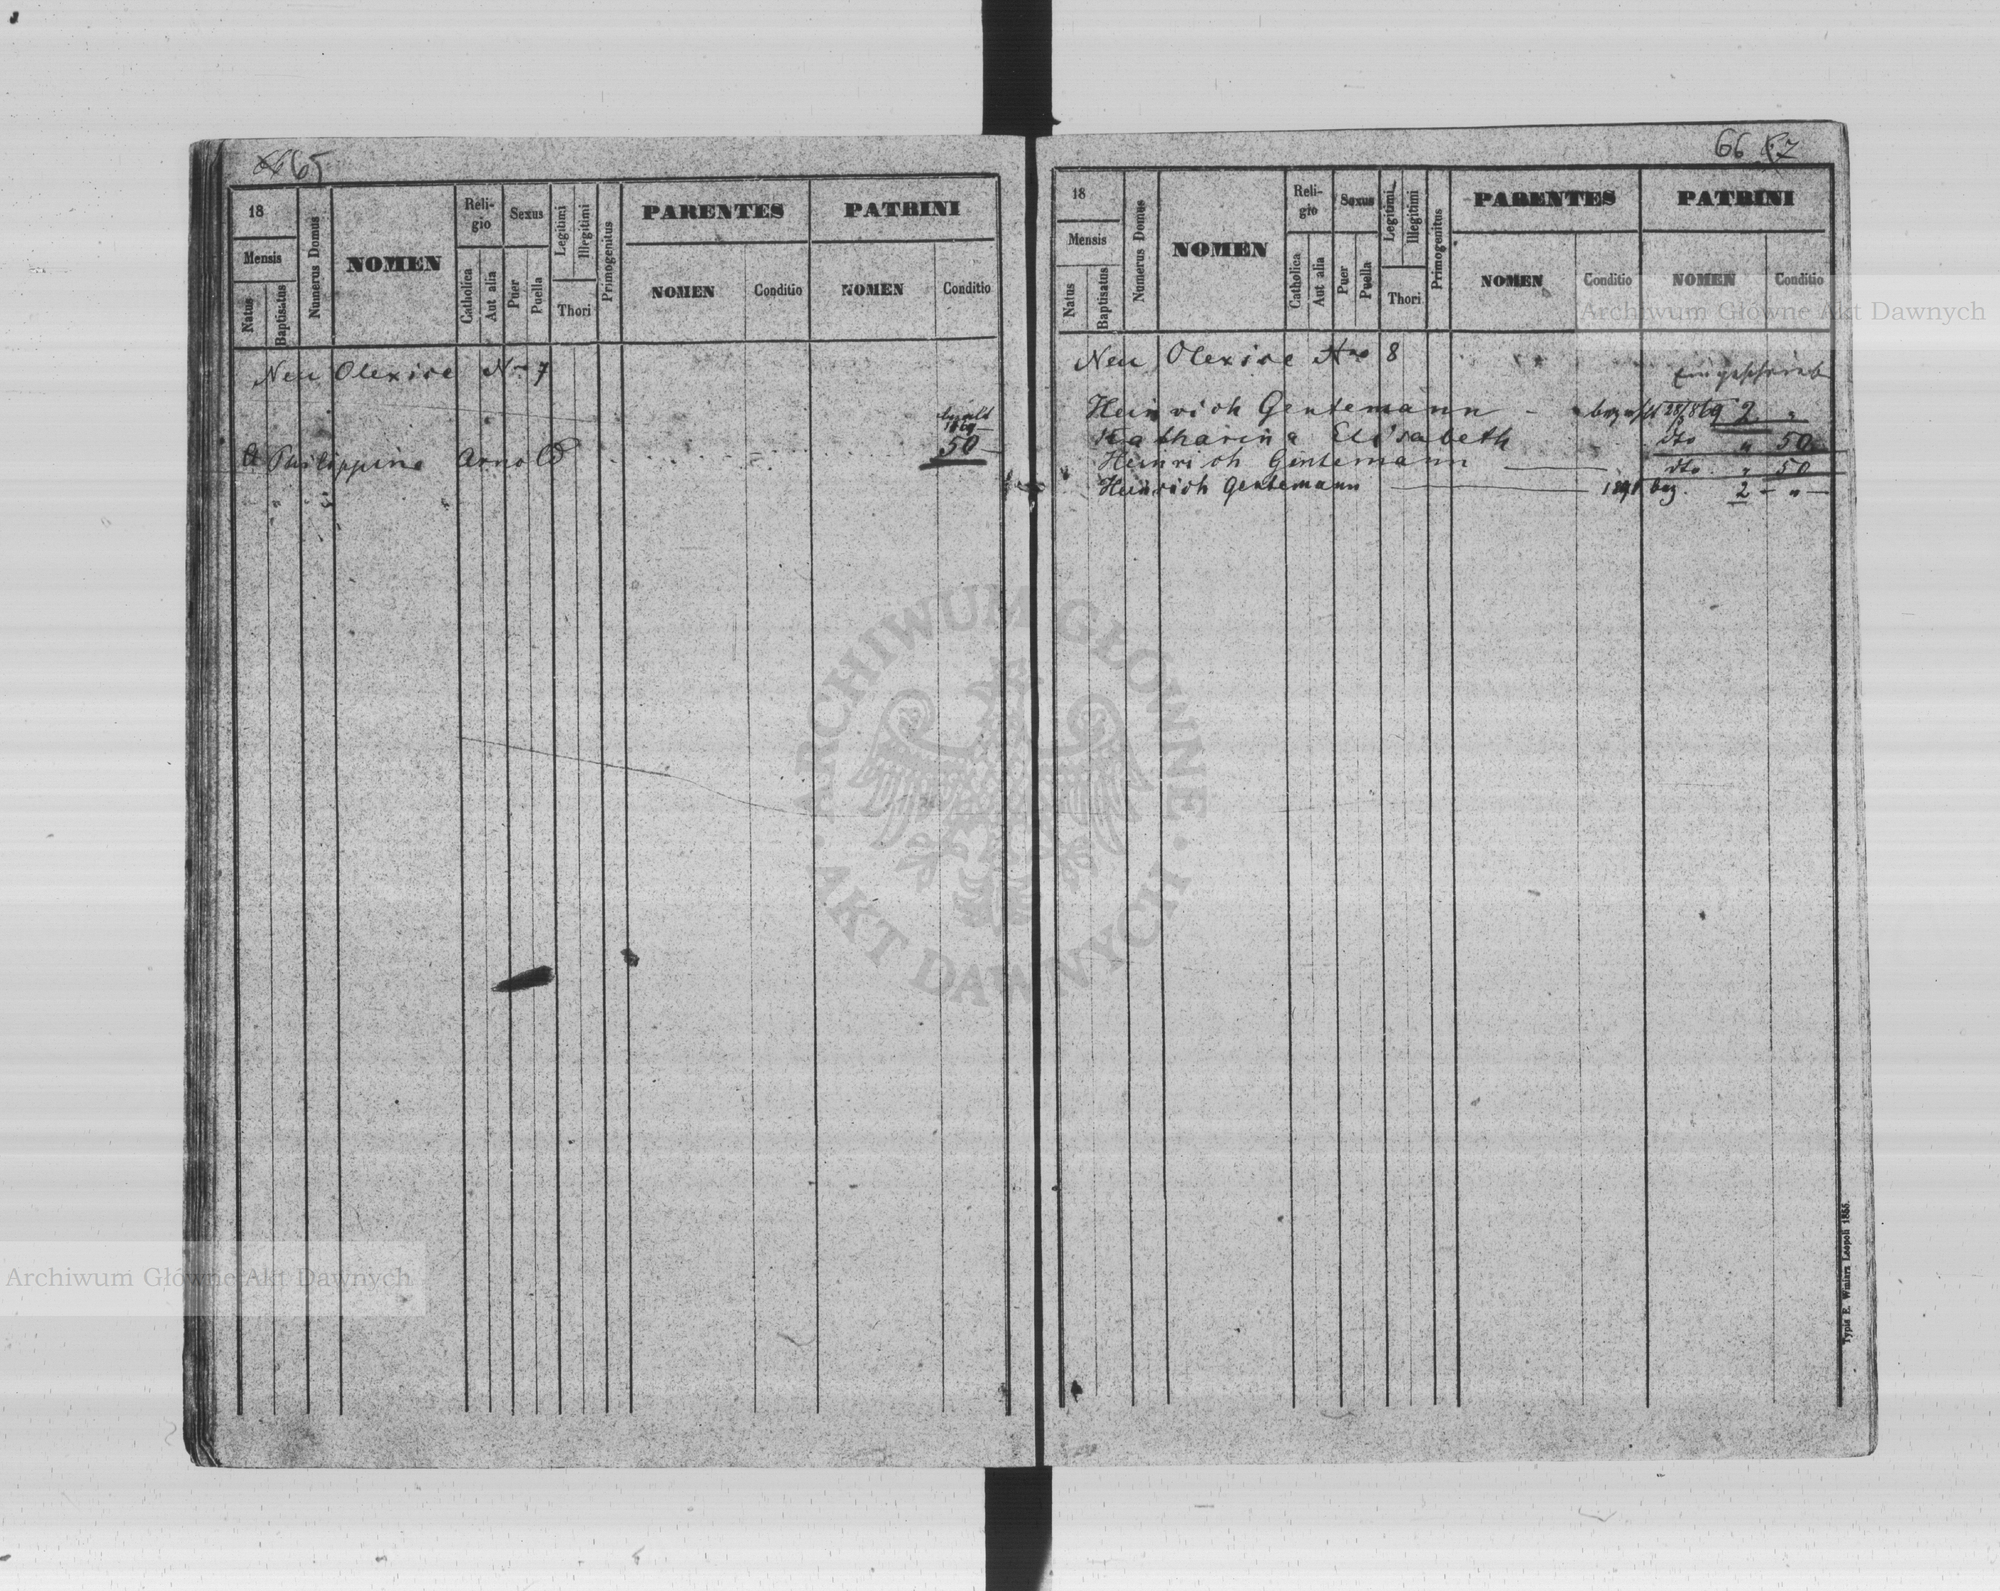 65
18
Mensis
Natus
Baptisatus
Numerus Domus
NOMEN
Reli-
gio
Catholica
Aut alia
Sexus
Puer
Puella
Legitimi
Illegitimi
Thori
Primogenitus
PARENTES
NOMEN
Conditio
PATRINI
NOMEN
Conditio
Neu Olexice Nro 7
50
Philippina Arnold
66
18
Mensis
Natus
Baptisatus
Numerus Domus
NOMEN
Reli-
gio
Catholica
Aut alia
Sexus
Puer
Puella
Legitimi
Illegitimi
Thori
Primogenitus
PARENTES
NOMEN
Conditio
PATRINI
NOMEN
Conditio
Neu Olexice Nro 8
Eingeschrieb
Heinrich Gentemann - bezahlt 2 "
Katharina Elisabeth dto " 50
Heinrich Gentemann dto " 50
Heinrich Gentemann bez. 2 - " -
Typis E. Winiarz Leopoli 1855.
Archiwum Główne Akt Dawnych
ARCHIWUM GŁÓWNE · AKT DAWNYCH ·
Archiwum Główne Akt Dawnych